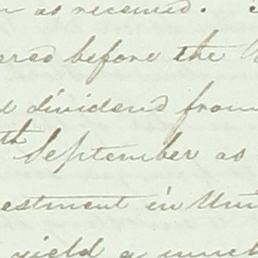 as received.
ered before the
dividend from
th September as
estment in Uni
yield a much